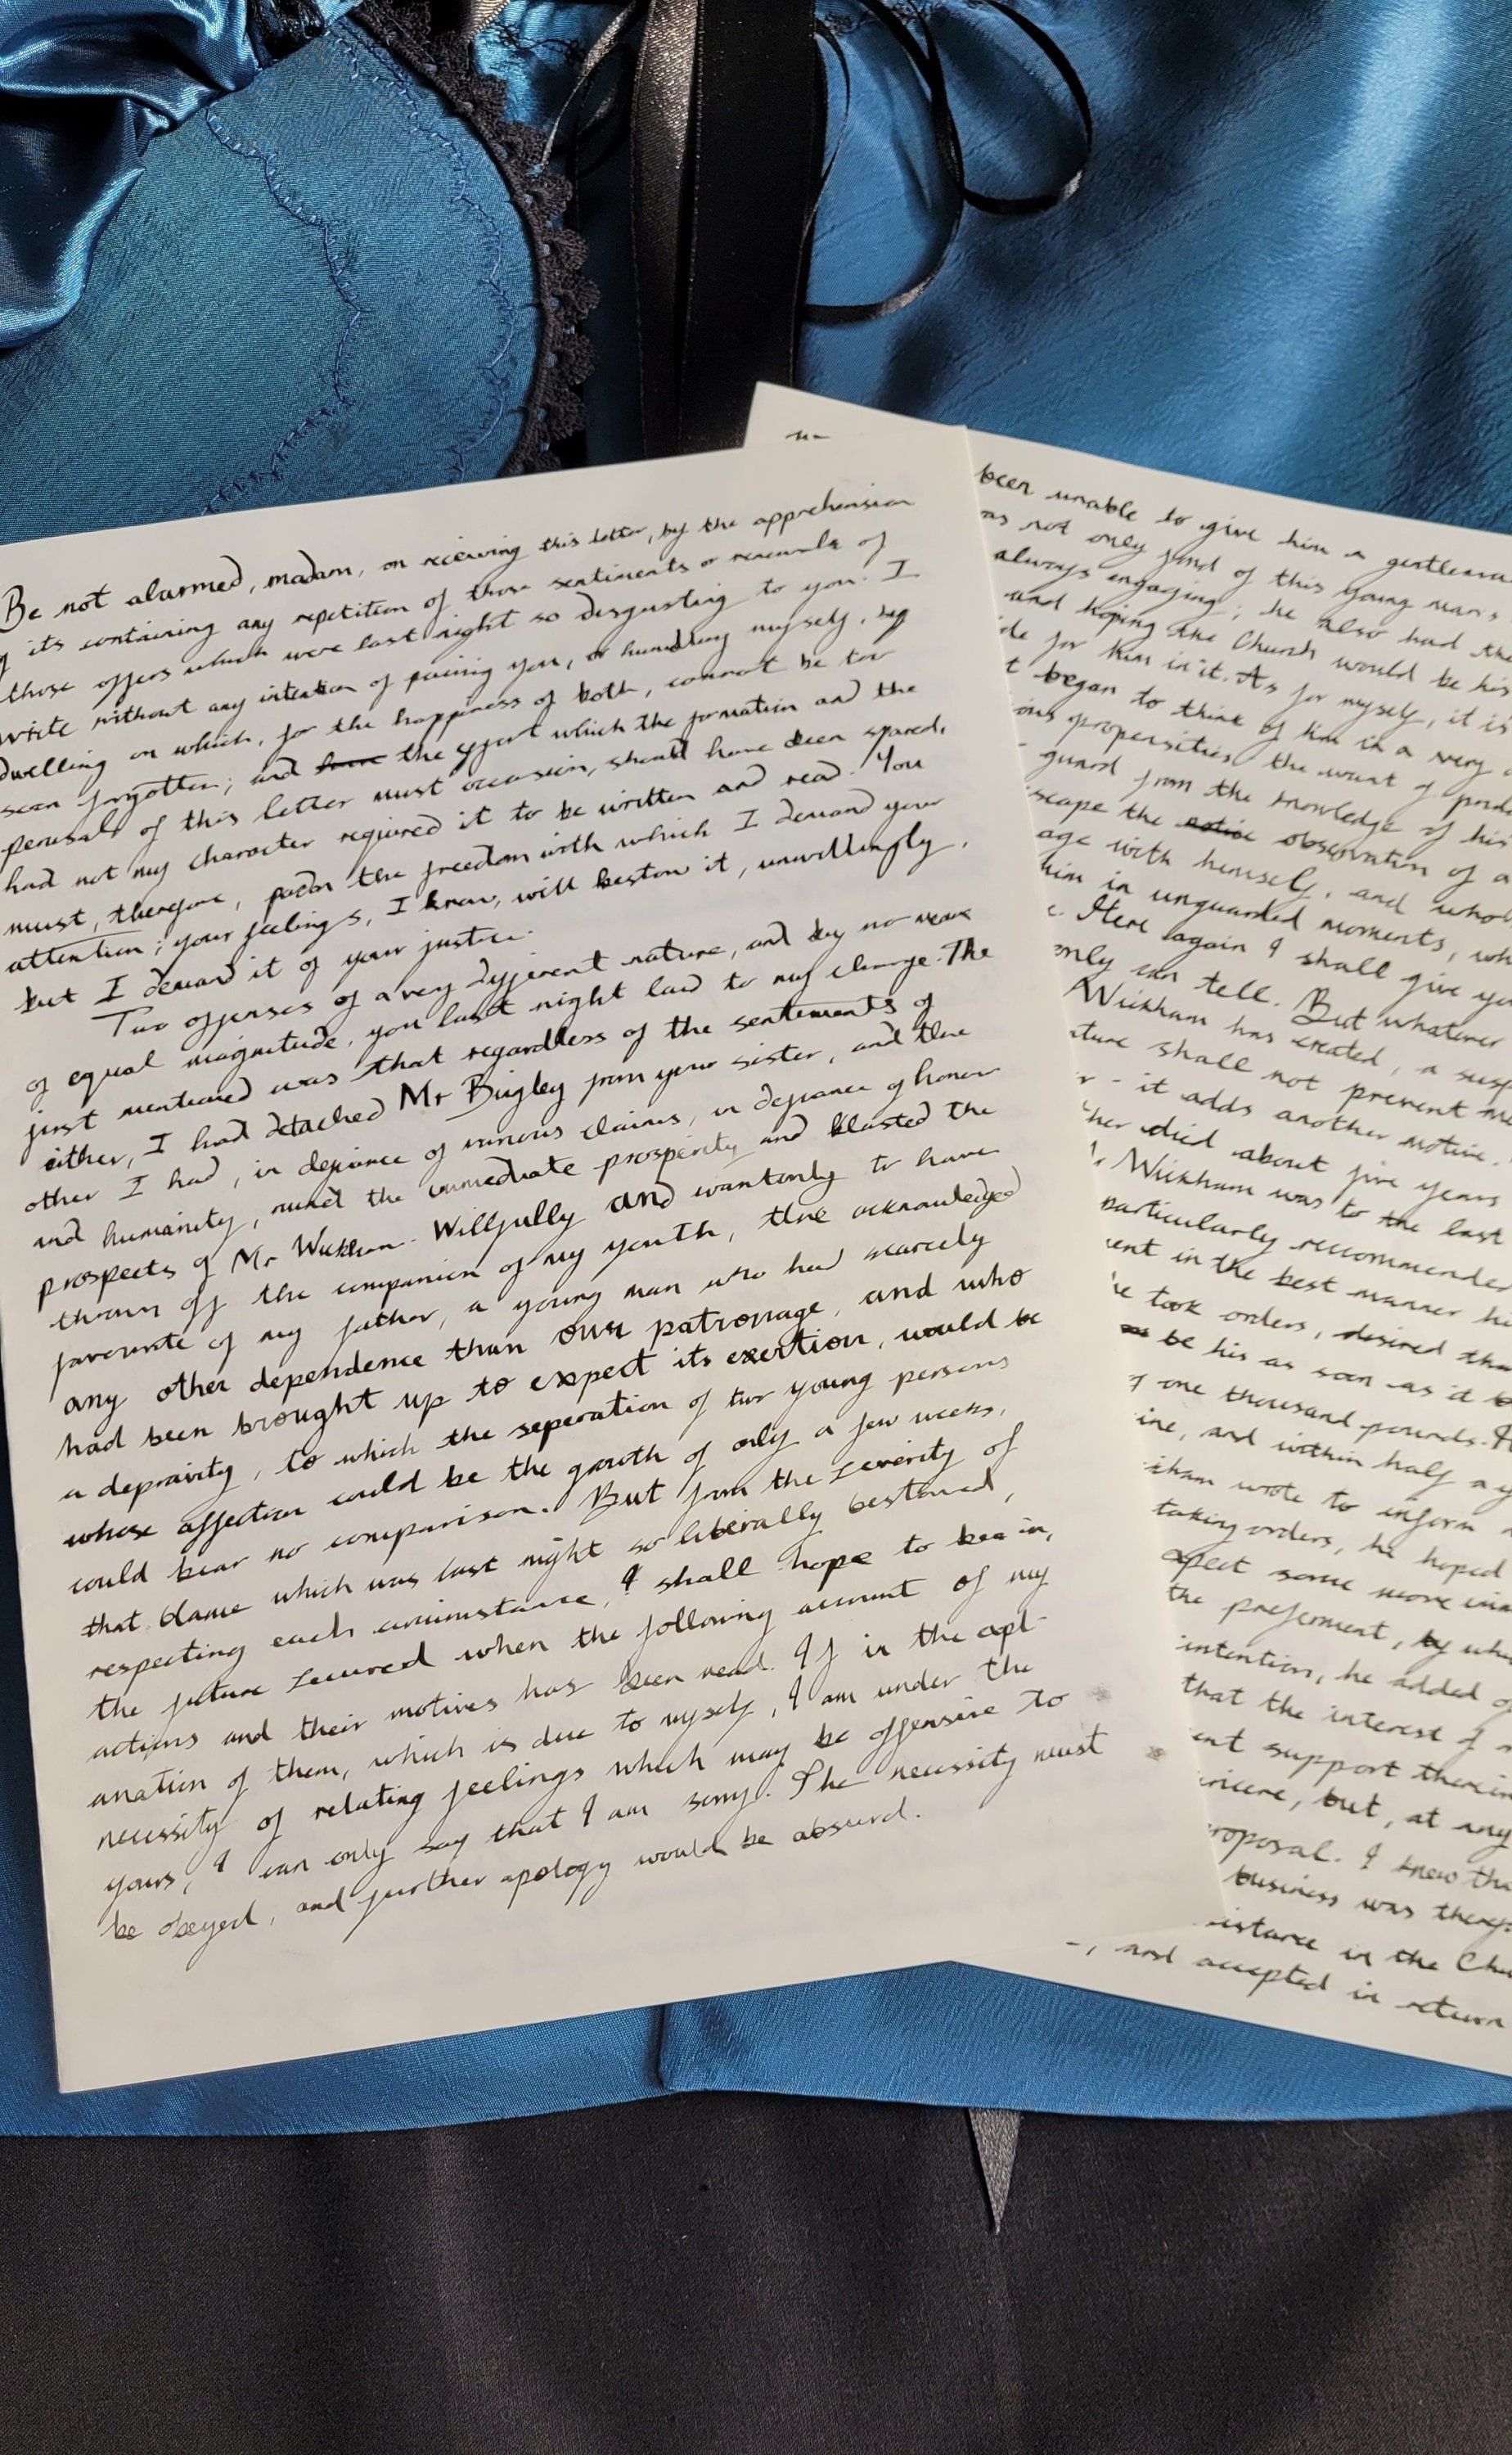 Be not alarmed, madam, on recieving this letter, by the apprehension
its containing any repetition of those sentiments or renewals of
those offers which were last night so disgusting to you. I
write without any intention of paining you, or humbling myself, by
dwelling on which, for the happiness of both, cannot be too
soon forgotten; and the effort which the formation and the
perusal of this letter must occasion, should have been spared,
had not my character required it to be written and read. You
must, therefore, the freedom with which I demand your
attention; your feelings, I know, will bestow it, unwillingly,
but I demand it of your justice.
Two offenses of a very different nature, and by no means
of equal magnitude, you last night laid to my charge. The
first mentioned was that regardless of the sentements of
either, I had detached Mr Bingley from your sister, and the
other I had, in defiance of various claims, in defiance of honor
and humanity, ruined the immediate prosperity and blasted the
prospects of Mr Wickham. Willfully and wantonly to have
thrown off the companion of my youth, the acknowledged
favourite of my father, a young man who had scarcely
any other dependence than our patronage, and who
had been brought up to expect its exertion, would be
a depravity, to which the seperation of two young persons
whose affection could be the growth of only a few weeks,
could bear no comparison. But from the severity of
that blame which was last night so liberally bestowed,
respecting each circumstance, I shall hope to be in,
the future secured when the following account of my
actions and their motives has been read. If in the expl-
anation of them, which is due to myself, I am under the
necessity of relating feelings which may be offensive to
yours, I can only say that I am sorry. The necessity must
be obeyed, and further apology would be absurd.
been unable to give him a gentleman
as not only fond of this young man's
always engaging; he also had the
and hoping the Church would be his
ide for him in it. As for myself, it is
t began to think of him in a very
ious propensities the want of
guard from the knowledge of his
scape the notice observation of a
age with himself, and who
him in unguarded moments, wh
e. Here again I shall give you
only can tell. But whatever
Wickham has created, a susp
ature shall not prevent me
r - it adds another motive.
her died about five years
Wickham was to the last
particularly recommended
ent in the best manner
he took orders, desired tha
be his as soon as it
f one thousand pounds.
ine, and within half a y
ckham wrote to inform
taking orders, he hoped
expect some more
the preferment, by wh
intention, he added
that the interest of
ent support therein
sincere, but, at any
roposal. I knew tha
business was
istance in the Chu
-, and accepted in return